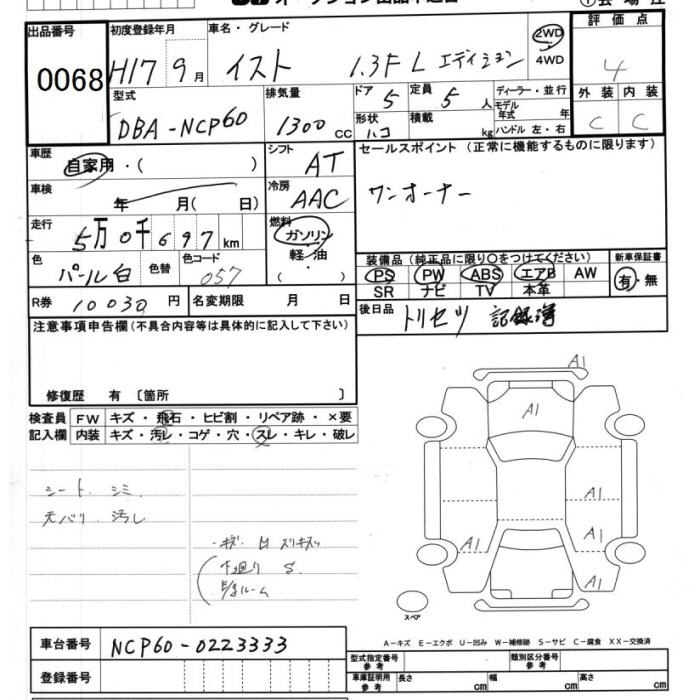 出品番号 0068
初度登録年月 H17 9月
車名・グレード イスト 1.3F L エディション
2WD 4WD
評価点 4
型式 DBA-NCP60
排気量 1300 cc
ドア 5 定員 5 人
形状 ハコ 積載 kg
ディーラー・並行
モデル年式 年
ハンドル 左・右
外装 内装
C C
車歴 自家用・( )
シフト AT
セールスポイント (正常に機能するものに限ります)
ワンオーナー
車検 年 月( 日)
冷房 AAC
走行 5万0千697km
燃料 ガソリン・軽・油 ( )
色 パール白 色替 色コード 057
装備品 (純正品に限り○をつけてください) 新車保証書
PS PW ABS エアB AW 有・無
SR ナビ TV 本革
R券 10030円 名変期限 月 日
後日品 トリセツ 記録簿
注意事項申告欄(不具合内容等は具体的に記入して下さい)
修復歴 有 〔箇所 〕
検査員 FW キズ・飛石・ヒビ割・リペア跡・×要
記入欄 内装 キズ・汚レ・コゲ・穴・スレ・キレ・破レ
シート シミ
天バリ 汚レ
下廻り S
A1
A1
A1
A1
A1
A1
スペア
A-キズ E-エクボ U-凹み W-補修跡 S-サビ C-腐食 XX-交換済
車台番号 NCP60-0223333
登録番号
型式指定番号 参考 類別区分番号 参考
車庫証明用 参考 長さ cm 幅 cm 高さ cm